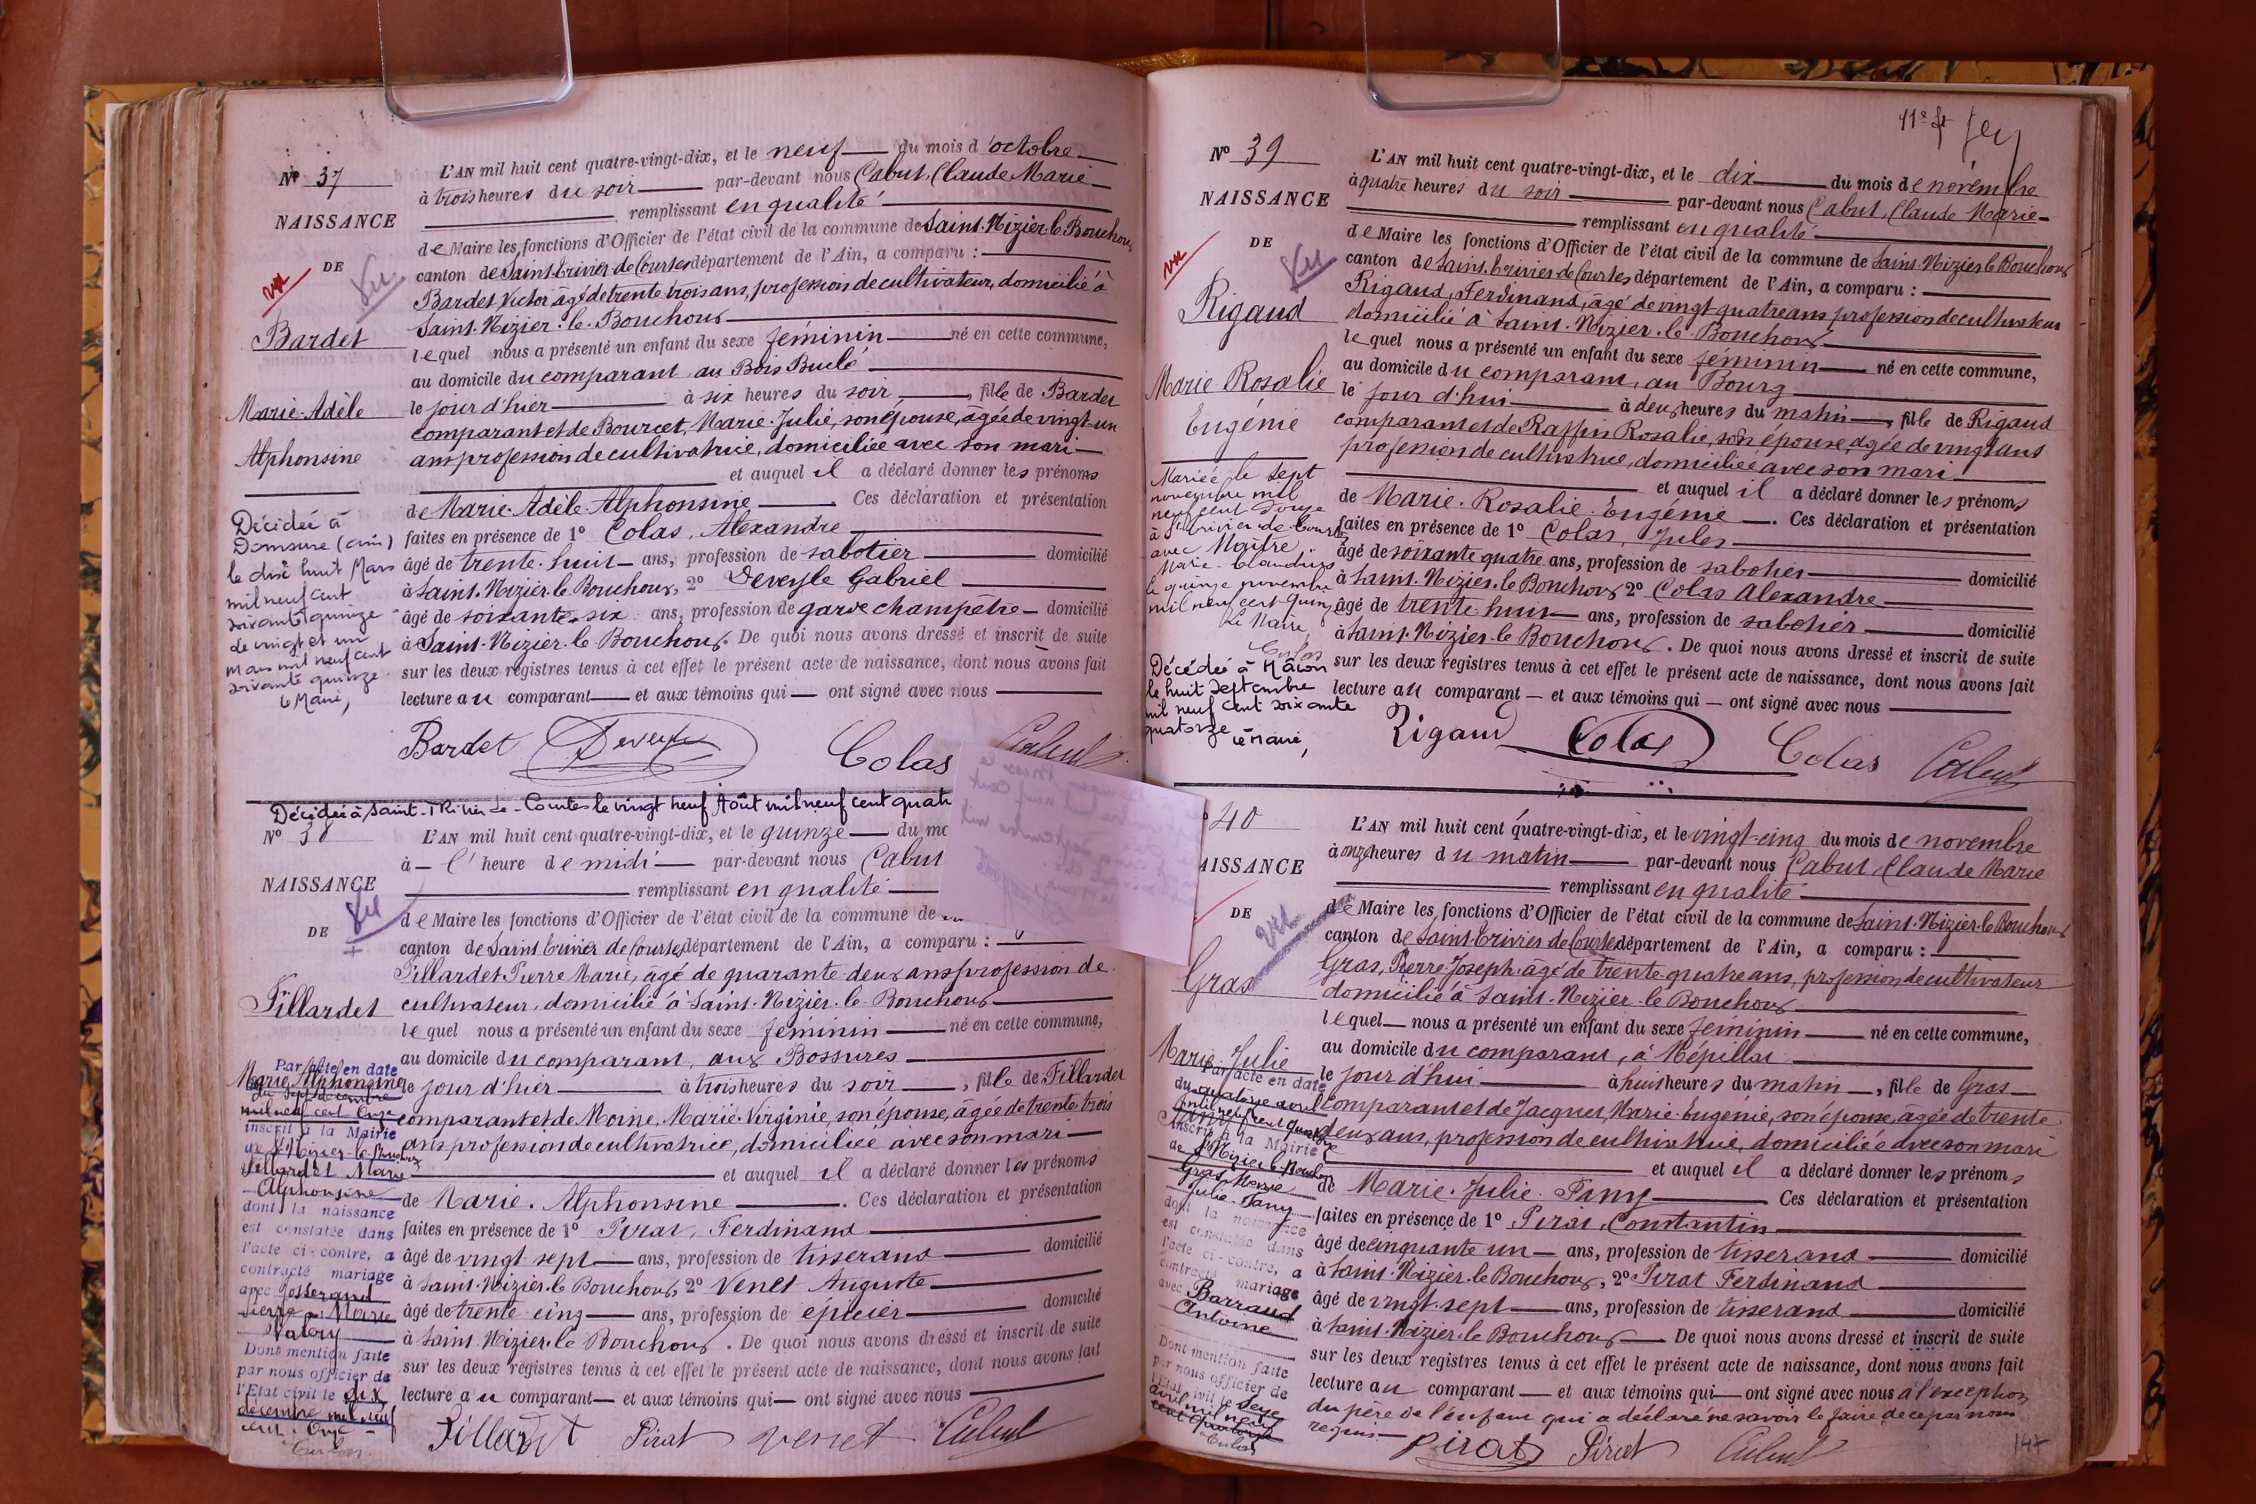 N° 37
NAISSANCE
DE
vu
Bardet
Marie-Adèle
Alphonsine
Décédée à
Domsure (Ain)
le dix huit Mars
mil neuf cent
soixante quinze
de vingt et un
Mars mil neuf cent
soixante quinze
le Maire,
L'AN mil huit cent quatre-vingt-dix, et le neuf du mois d'octobre
à trois heures du soir par-devant nous Cabut, Claude Marie
remplissant en qualité
de Maire les fonctions d'Officier de l'état civil de la commune de Saint-Nizier-le-Bouchoux
canton de Saint-Trivier-de-Courtes département de l'Ain, a comparu :
Bardet Victor âgé de trente trois ans, profession de cultivateur, domicilié à
Saint-Nizier-le-Bouchoux
lequel nous a présenté un enfant du sexe féminin né en cette commune,
au domicile du comparant au Bois Brulé
le jour d'hier à six heures du soir, fille de Bardet
comparant et de Bourcet, Marie-Julie, son épouse, âgée de vingt-un
ans profession de cultivatrice, domiciliée avec son mari
et auquel il a déclaré donner les prénoms
de Marie-Adèle-Alphonsine. Ces déclaration et présentation
faites en présence de 1° Colas, Alexandre
âgé de trente-huit ans, profession de sabotier domicilié
à Saint-Nizier-le-Bouchoux, 2° Deveyle Gabriel
âgé de soixante-six ans, profession de garde champêtre domicilié
à Saint-Nizier-le-Bouchoux. De quoi nous avons dressé et inscrit de suite
sur les deux registres tenus à cet effet le présent acte de naissance, dont nous avons fait
lecture au comparant et aux témoins qui ont signé avec nous
Bardet Deveyle Colas Cabut
Décédée à Saint-Trivier-de-Courtes le vingt neuf Août mil neuf cent quat
N° 38
NAISSANCE
DE
Fillardet
Marie Alphonsine
Par acte en date
du sept décembre
mil neuf cent Onze
inscrit à la Mairie
de St Nizier-le-Bouchoux
Fillardet Marie
Alphonsine
dont la naissance
est constatée dans
l'acte ci-contre, a
contracté mariage
avec Josserand
Pierre Marie
Valery
Dont mention faite
par nous officier de
l'Etat civil le dix
décembre mil neuf
cent Onze
L'AN mil huit cent quatre-vingt-dix, et le quinze du mo
à l'heure de midi par-devant nous Cabut
remplissant en qualité
de Maire les fonctions d'Officier de l'état civil de la commune de
canton de Saint-Trivier-de-Courtes département de l'Ain, a comparu :
Fillardet Pierre Marie, âgé de quarante-deux ans profession de
cultivateur, domicilié à Saint-Nizier-le-Bouchoux
lequel nous a présenté un enfant du sexe féminin né en cette commune,
au domicile du comparant, aux Bossures
le jour d'hier à trois heures du soir, fille de Fillardet
comparant et de Moine, Marie-Virginie, son épouse, âgée de trente-trois
ans profession de cultivatrice, domiciliée avec son mari
et auquel il a déclaré donner les prénoms
de Marie-Alphonsine. Ces déclaration et présentation
faites en présence de 1° Pirat, Ferdinand
âgé de vingt-sept ans, profession de tisserand domicilié
à Saint-Nizier-le-Bouchoux, 2° Venet Auguste
âgé de trente-cinq ans, profession de épicier domicilié
à Saint-Nizier-le-Bouchoux. De quoi nous avons dressé et inscrit de suite
sur les deux registres tenus à cet effet le présent acte de naissance, dont nous avons fait
lecture au comparant et aux témoins qui ont signé avec nous
Fillardet Pirat Venet Cabut
N° 39
NAISSANCE
DE
vu
Rigaud
Marie Rosalie
Eugénie
Mariée le sept
novembre mil
neuf cent douze
à St Trivier-de-Courtes
avec Maître
Marie-Claudius
le quinze novembre
mil neuf cent quinze
Le Maire
Décédée à Mâcon
le huit septembre
mil neuf cent soixante
quatorze
le Maire,
L'AN mil huit cent quatre-vingt-dix, et le dix du mois de novembre
à quatre heures du soir par-devant nous Cabut, Claude Marie
remplissant en qualité
de Maire les fonctions d'Officier de l'état civil de la commune de Saint-Nizier-le-Bouchoux
canton de Saint-Trivier-de-Courtes département de l'Ain, a comparu :
Rigaud, Ferdinand, âgé de vingt quatre ans profession de cultivateur
domicilié à Saint-Nizier-le-Bouchoux
lequel nous a présenté un enfant du sexe féminin né en cette commune,
au domicile du comparant, au Bourg
le jour d'hui à deux heures du matin, fille de Rigaud
comparant et de Raffin Rosalie, son épouse, âgée de vingt ans
profession de cultivatrice, domiciliée avec son mari
et auquel il a déclaré donner les prénoms
de Marie-Rosalie-Eugénie. Ces déclaration et présentation
faites en présence de 1° Colas, Jules
âgé de soixante quatre ans, profession de sabotier domicilié
à Saint-Nizier-le-Bouchoux 2° Colas Alexandre
âgé de trente-huit ans, profession de sabotier domicilié
à Saint-Nizier-le-Bouchoux. De quoi nous avons dressé et inscrit de suite
sur les deux registres tenus à cet effet le présent acte de naissance, dont nous avons fait
lecture au comparant et aux témoins qui ont signé avec nous
Rigaud Colas Colas Cabut
40
AISSANCE
DE
Gras
Marie-Julie
Fany
Par acte en date
du quatorze avril
mil neuf cent quatorze
inscrit à la Mairie
de St Nizier le Bouchoux
Gras Marie
Julie-Fany
dont la naissance
est constatée dans
l'acte ci-contre, a
contracté mariage
avec Barraud
Antoine
Dont mention faite
par nous officier de
l'Etat civil le seize
avril mil neuf
cent quatorze
L'AN mil huit cent quatre-vingt-dix, et le vingt-cinq du mois de novembre
à onze heures du matin par-devant nous Cabut, Claude Marie
remplissant en qualité
de Maire les fonctions d'Officier de l'état civil de la commune de Saint-Nizier-le-Bouchoux
canton de Saint-Trivier-de-Courtes département de l'Ain, a comparu :
Gras, Pierre Joseph âgé de trente-quatre ans, profession de cultivateur
domicilié à Saint-Nizier-le-Bouchoux
lequel nous a présenté un enfant du sexe féminin né en cette commune,
au domicile du comparant, à Népillat
le jour d'hui à huit heures du matin, fille de Gras
comparant et de Jacquet, Marie-Eugénie, son épouse, âgée de trente
deux ans, profession de cultivatrice, domiciliée avec son mari
et auquel il a déclaré donner les prénoms
de Marie-Julie-Fany Ces déclaration et présentation
faites en présence de 1° Pirat, Constantin
âgé de cinquante un ans, profession de tisserand domicilié
à Saint-Nizier-le-Bouchoux, 2° Pirat Ferdinand
âgé de vingt-sept ans, profession de tisserand domicilié
à Saint-Nizier-le-Bouchoux De quoi nous avons dressé et inscrit de suite
sur les deux registres tenus à cet effet le présent acte de naissance, dont nous avons fait
lecture au comparant et aux témoins qui ont signé avec nous à l'exception
du père de l'enfant qui a déclaré ne savoir le faire de ce par nous
requis.
Pirat Pirat Cabut